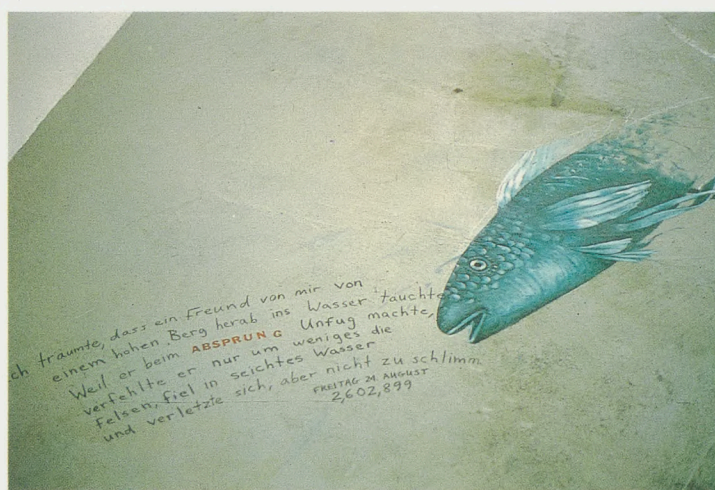 ch träumte, dass ein Freund von mir von
einem hohen Berg herab ins Wasser tauchte
Weil er beim ABSPRUNG Unfug machte,
verfehlte er nur um weniges die
Felsen, fiel in seichtes Wasser
und verletzte sich, aber nicht zu schlimm
FREITAG 24 AUGUST
2,602,899